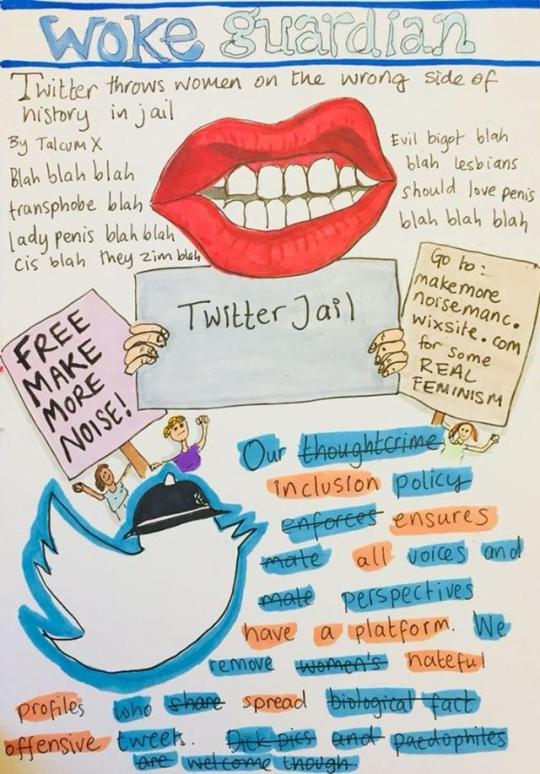 woke guardian
Twitter throws women on the wrong side of
history in jail
By Talcum X
Blah blah blah
transphobe blah
lady penis blah blah
cis blah they zim blah
Evil bigot blah
blah lesbians
should love penis
blah blah blah
Twitter Jail
FREE
MAKE
MORE
NOISE!
Go to:
makemore
noisemanc.
wixsite.com
for some
REAL
FEMINISM
Our thoughtcrime
inclusion policy
enforces ensures
male all voices and
male perspectives
have a platform. We
remove women's hateful
profiles who share spread biological fact
offensive tweets. Dick pics and paedophiles
are welcome though.